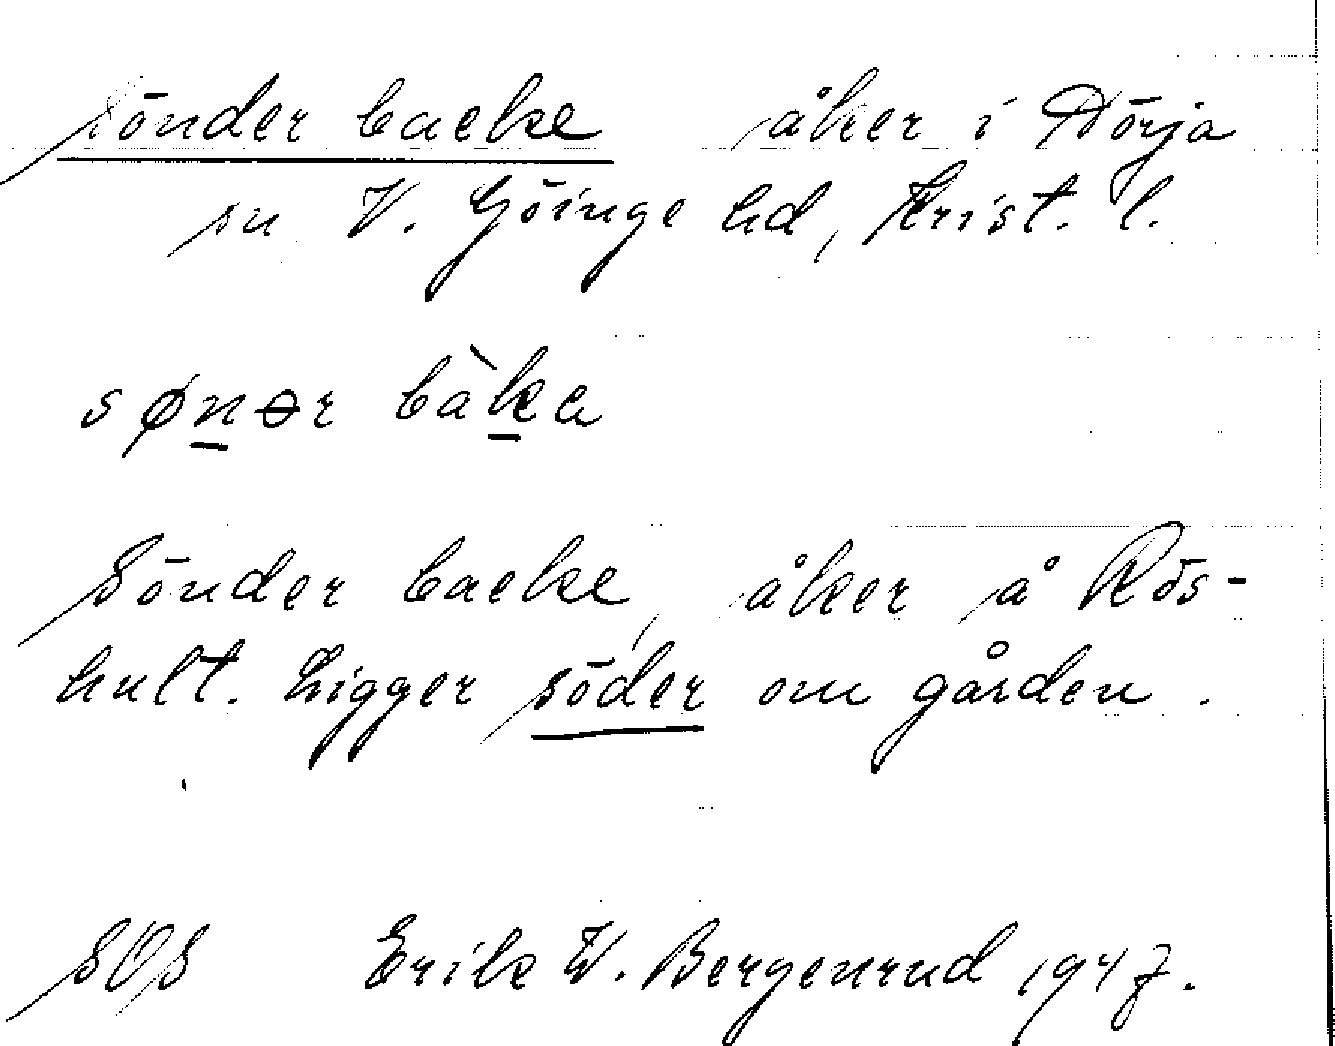 sönder backe åker i Hörja
sn V. Göinge hd, Krist. l.
sønər bàka
Sönder backe, åker å Rös-
hult. Ligger söder om gården.
SOS Erik W. Bergenrud 1947.